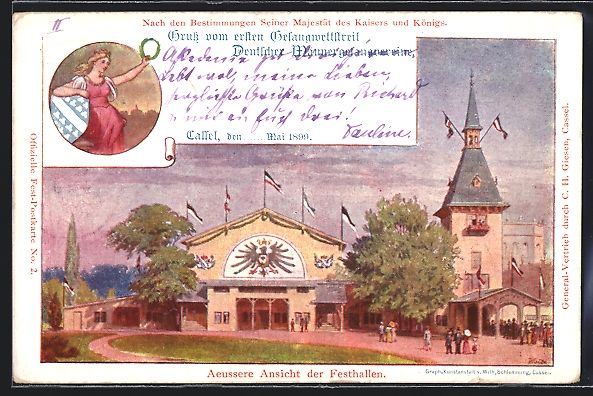 II
Nach den Bestimmungen Seiner Majestät des Kaisers und Königs.
Gruß vom ersten Gesangwettstreit
Deutscher Männergesangvereine,
Akademie
lebt wol, meine Lieben,
herzlichste Grüße von Richard
u. mir an Euch drei!
Cassel, den ...... Mai 1899.
Pauline.
Offizielle Fest-Postkarte No. 2.
General-Vertrieb durch C. H. Giesen, Cassel.
Aeussere Ansicht der Festhallen.
Graph. Kunstanstalt v. Wilh. Schlemming, Cassel.